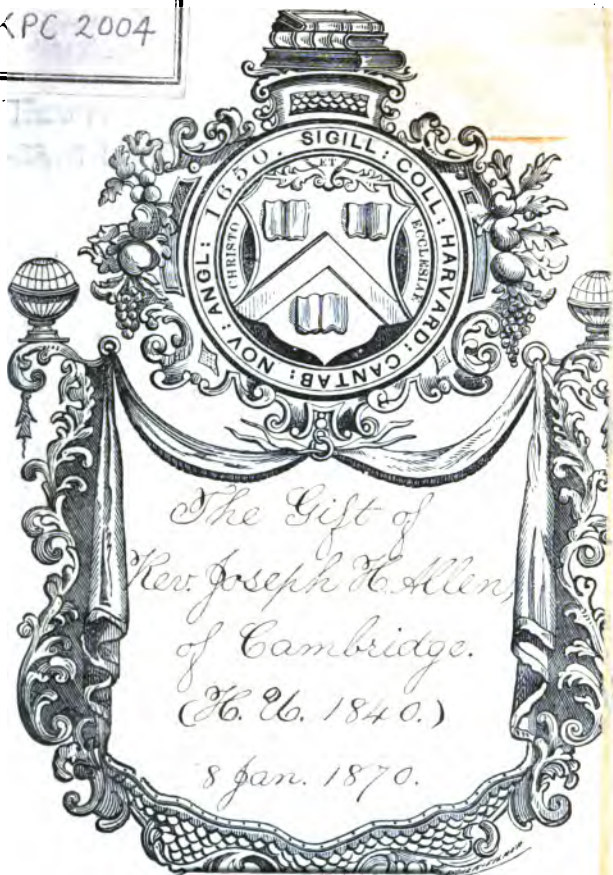 KPC 2004
SIGILL: COLL: HARVARD: CANTAB: NOV: ANGL: 1650.
CHRISTO
ET
ECCLESIAE
The Gift of
Rev. Joseph H. Allen,
of Cambridge.
(H. U. 1840.)
8 Jan. 1870.